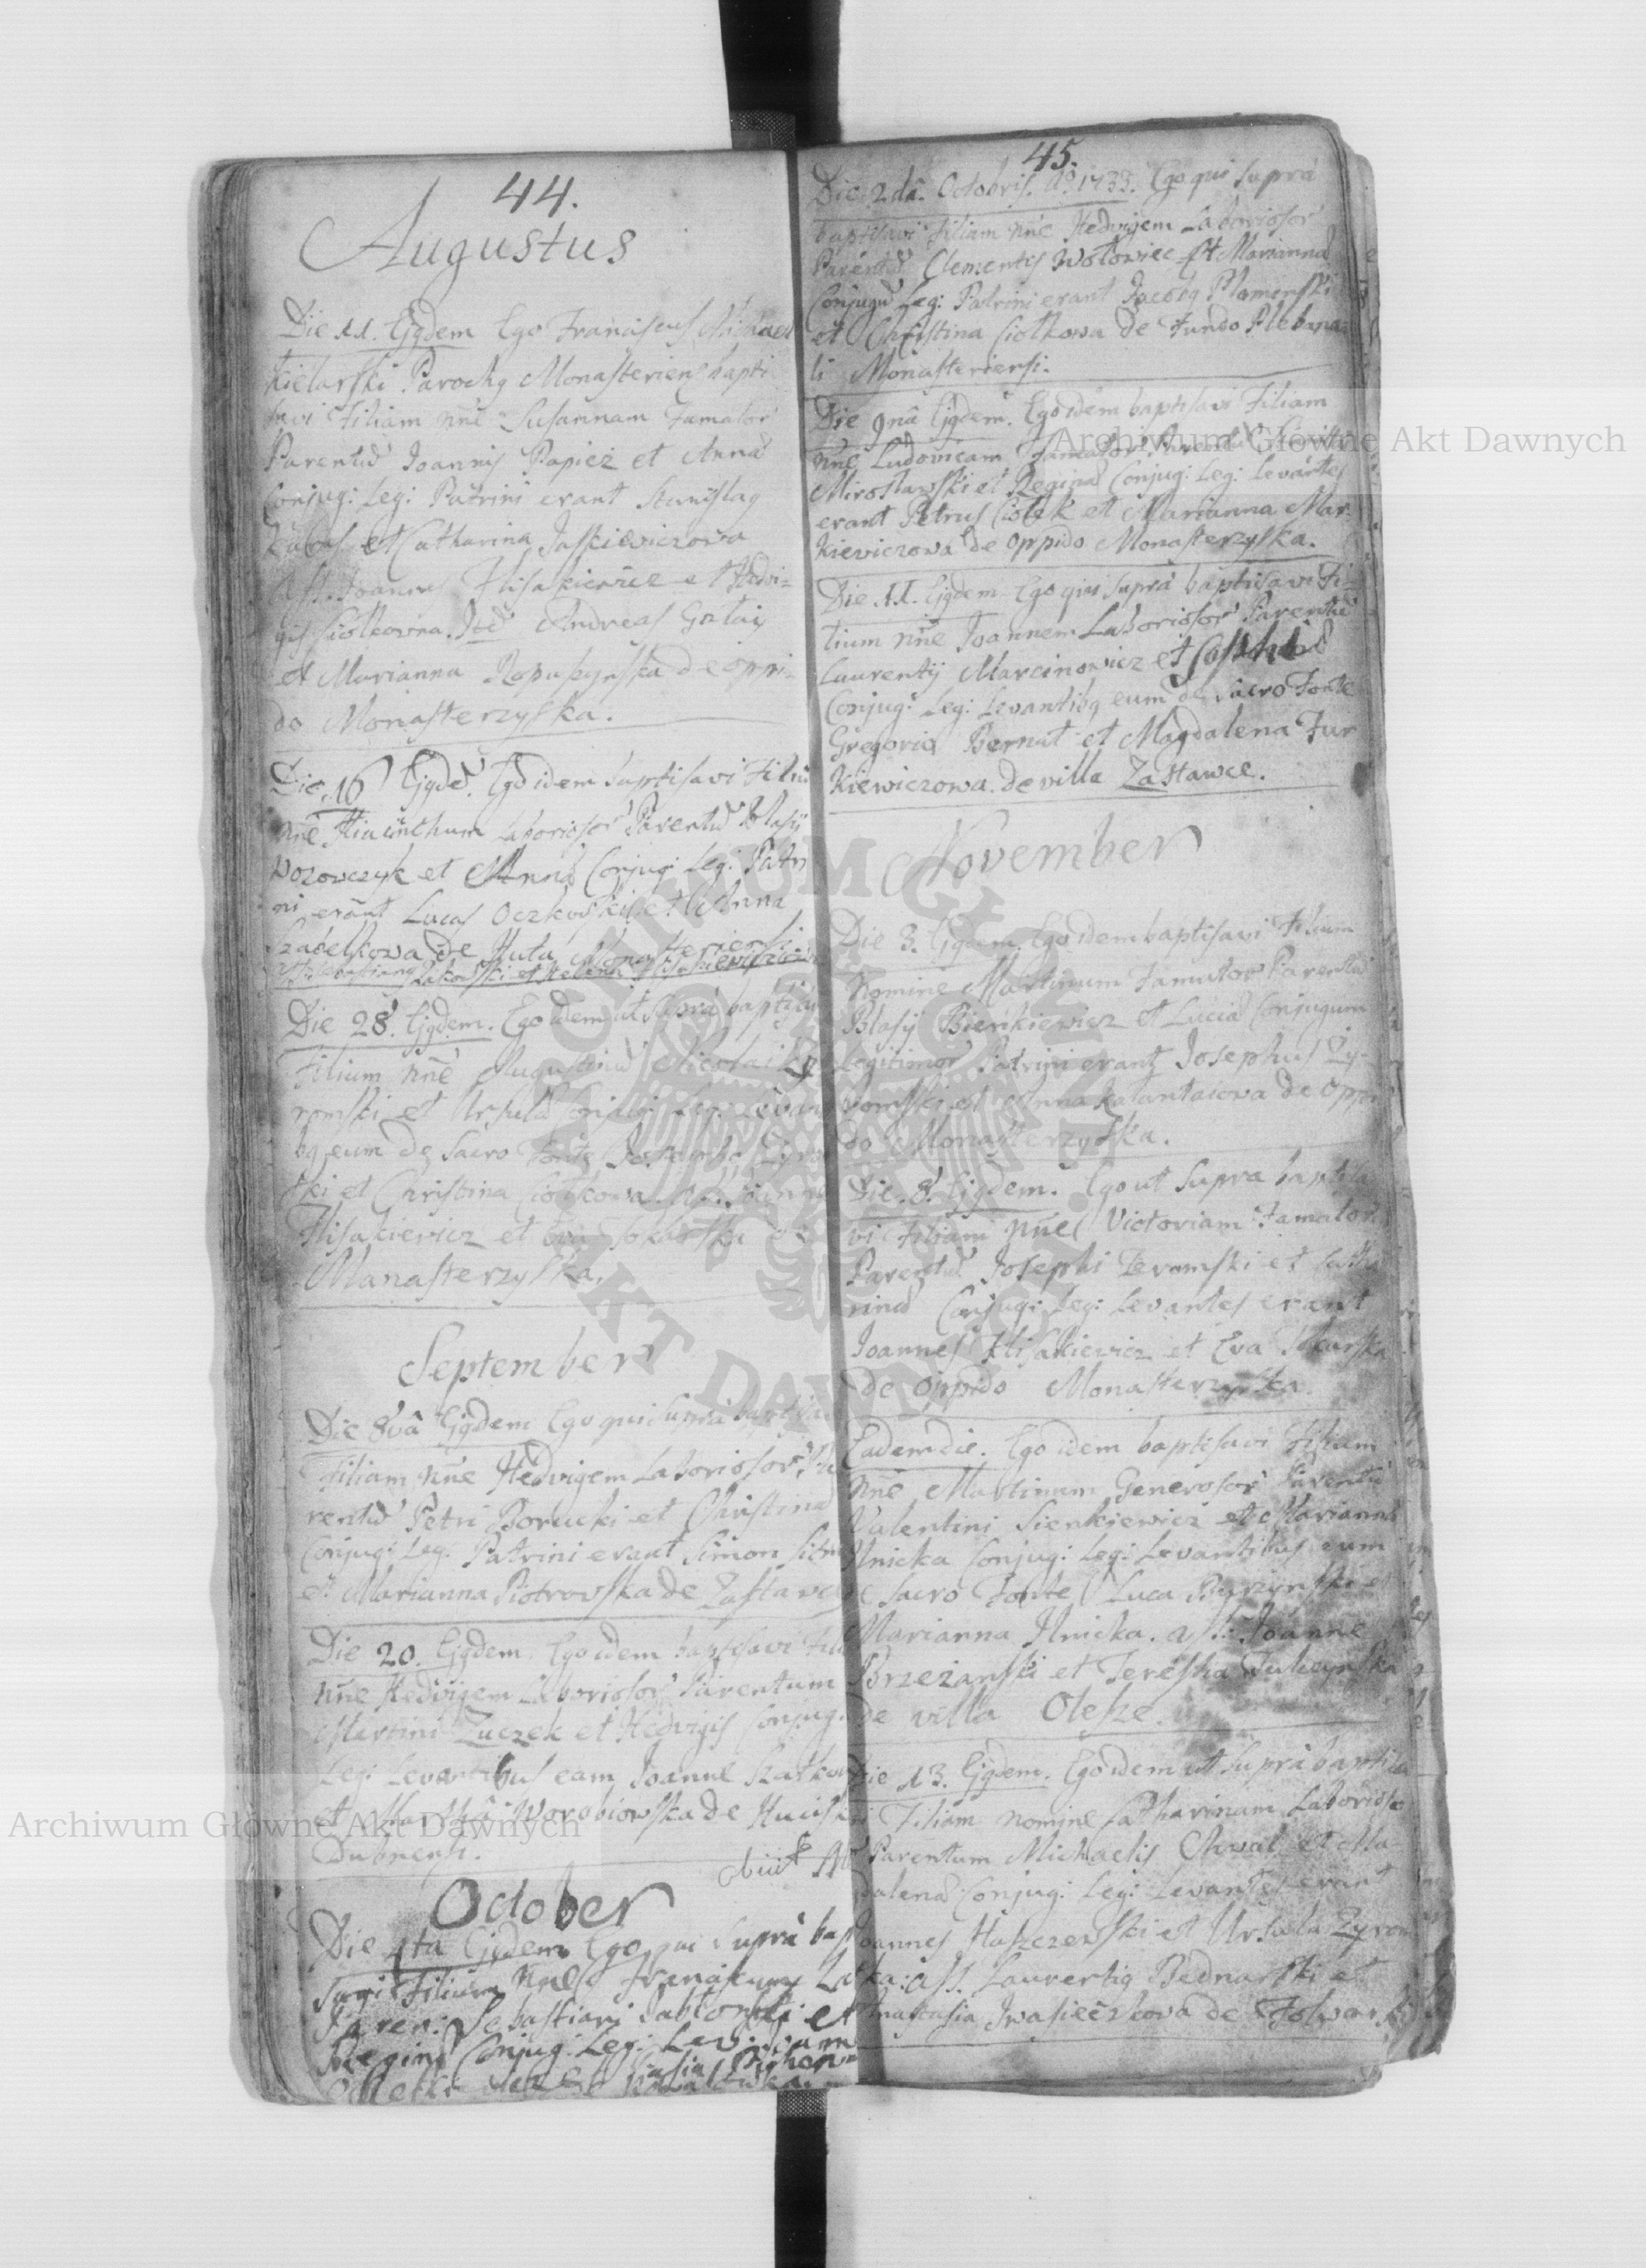 44.
Augustus
Die 11. Ejqdem Ego Franciscus Michael
Kielarski Parochq Monasteriens bapti
savi Filiam nne Susannam Famator
Parentu Joannis Papiez et Anna
Conjug: Leg: Patrini erant Stanislaq
et Catharina Jaskiewiczowa
Ass. Joannes Flisakiewicz et Hedvi-
gis Ciołkowna. Ite Andreas
et Marianna de oppi-
do Monasterzyska.
Die 16 Ejqde. Ego idem baptisavi Filiu
nne Hiacinthum Laboriosor Parentu Blasij
Wozowczyk et Anna Conjug: Leg: Patri
ni erant Lucas Oczkowski et Anna
Szabelkowa de Huta Monasteriensi
Die 28. Ejqdem. Ego idem ut supra baptisa
Filium nne Augustinu Nicolai Zy
romski et Ursula Conjug: Leg: Levan
bq eum de Sacro Fonte Josepho Zyrom
ski et Christina Ciołkowa. Ass. Joannes
Flisakiewicz et Eva Sokarska
Manasterzyska.
September
Die 8va Ejqdem Ego qui supra baptisa
Filiam nne Hedvigem Laboriosor Pa
rentu Petri Borucki et Christina
Conjug: Leg: Patrini erant Simon
et Marianna Piotrowska de Zastawce
Die 20. Ejqdem. Ego idem baptisavi Filia
nne Hedvigem Laboriosor Parentum
Martini Zuczek et Hedvigis Conjug.
Leg: Levantibus eam Joanne
et Martha Worobiowska de Hucisko
Dubnensi.
obiit
October
Die 4ta Ejqdem Ego qui supra bap
tisavi Filium nne Franciscum La
Paren: Sebastiani Jabłonski et
Regina Conjug: Leg: Lev: eum
45.
Die 2da. Octobris. Ao 1733. Ego qui supra
baptisavi Filiam nne Hedvigem Laboriosor
Parentu Clementis Wołowiec et Marianna
Conjugu Leg: Patrini erant Jacobq
et Christina Ciołkowa de Fundo Plebana-
li Monasteriensi.
Die 9na Ejqdem. Ego idem baptisavi Filiam
nne Ludovicam Famator: Parentu
Mirosławski et Regina Conjug: Leg: Levantes
erant Petrus Ciołek et Marianna Mar-
kieviczowa de Oppido Monasterzyska.
Die 11. Ejqdem Ego qui supra baptisavi Fi-
lium nne Joannem Laboriosor Parentu
Laurentij Marcinowicz et
Conjug: Leg: Levantibq eum de Sacro Fonte
Gregorio Bernat et Magdalena Jur
kiewiczowa. de villa Zastawce.
November
Die 3. Ejqdem. Ego idem baptisavi Filium
nomine Martinum Famator Parentu
Blasij Bieńkiewicz et Lucia Conjugum
Legitimor Patrini erant Josephus Zy-
romski et Anna Kałantaiowa de Oppi
do Monasterzyska.
Die 8. Ejqdem. Ego ut supra baptisa
vi Filiam nne Victoriam Famator:
Parentu Josephi et Catha
rina Conjug: Leg: Levantes erant
Joannes Flisakiewicz et Eva Sokarska
de Oppido Monasterzyska.
Eadem die. Ego idem baptisavi Filium
nne Martinum Generosor Parentu
Valentini Sienkiewicz et Marianna
Ilnicka Conjug: Leg: Levantibus eum
de Sacro Fonte Luca et
Marianna Ilnicka. ass: Joanne
Brzeżanski et Teresia
de villa Olesze.
Die 13. Ejqdem. Ego idem ut supra baptisa
vi Filiam nomine Catharinam Laborioso
Parentum Michaelis Chwal et Ma
dalena Conjug: Leg: Levantes erant
Joannes Haszczewski et Ursula Zyrom
ska: ass. Laurentiq Bednarski et
Anastasia Iwasieczkowa de Folwark
Archiwum Główne Akt Dawnych
Archiwum Główne Akt Dawnych
ARCHIWUM GŁÓWNE AKT DAWNYCH